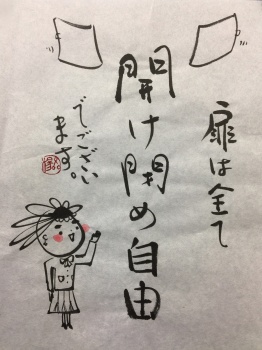 扉は全て
開け閉め自由
でござい
ます。